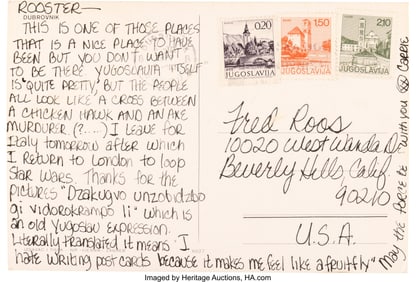 ROOSTER—
DUBROVNIK
THIS IS ONE OF THOSE PLACES
THAT IS A NICE PLACE TO HAVE
BEEN BUT YOU DON'T WANT
TO BE THERE. YUGOSLAVIA ITSELF
IS "QUITE PRETTY," BUT THE PEOPLE
ALL LOOK LIKE A CROSS BETWEEN
A CHICKEN HAWK AND AN AXE
MURDURER (?....) I LEAVE FOR
ITALY TOMORROW AFTER WHICH
I RETURN TO LONDON TO LOOP
STAR WARS. THANKS FOR THE
PICTURES "DZAKUGVO UNZOVIDZBO
GI VIDOROKRAMPO LI" WHICH IS
AN OLD YUGOSLAV EXPRESSION.
LITERALLY TRANSLATED IT MEANS "I
HATE WRITING POST CARDS BECAUSE IT MAKES ME FEEL LIKE A FRUITFLY"
MAY THE FORCE BE WITH YOU
CARRIE
0,20
JUGOSLAVIJA
1,50
JUGOSLAVIJA
2,10
JUGOSLAVIJA
Fred Roos
10020 West Wanda Dr
Beverly Hills, Calif.
90210
U.S.A.
Imaged by Heritage Auctions, HA.com